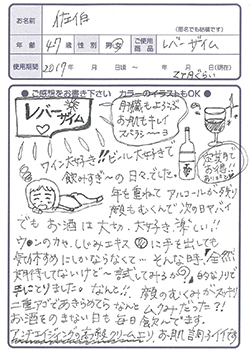 お名前 佐伯
(匿名でも結構です)
年齢 47才 性別 男・女 ご使用商品 レバーザイム
使用期間 2017年 月 日ころ ～ 年 月 日
2ヶ月ぐらい
●ご感想をお書き下さい カラーのイラストもOK●
レバーザイム
肝臓もよろこぶ
お肌もキレイ
スベスベ～ヨ
定期で
お得!
ワイン大好き!!ビール大好きで
飲みすぎ～の日々でした。
年を重ねてアルコールが残り
顔もむくんで次の日ヤバイ
でもお酒は大切、大好き、楽しい!!
ウ○ンの力や、しじみエキスに手を出しても
気休めにしかならなくて…そんな時!全然
期待してないけど～試してみるか 的なノリで
手にとりました。なんと!!顔のむくみがスッキリ
二重アゴであきらめてたらなんとムクみだった?!
お酒をのまない日も毎日飲んでます。
アンチエイジングの高級クリームより、お肌調子イイです